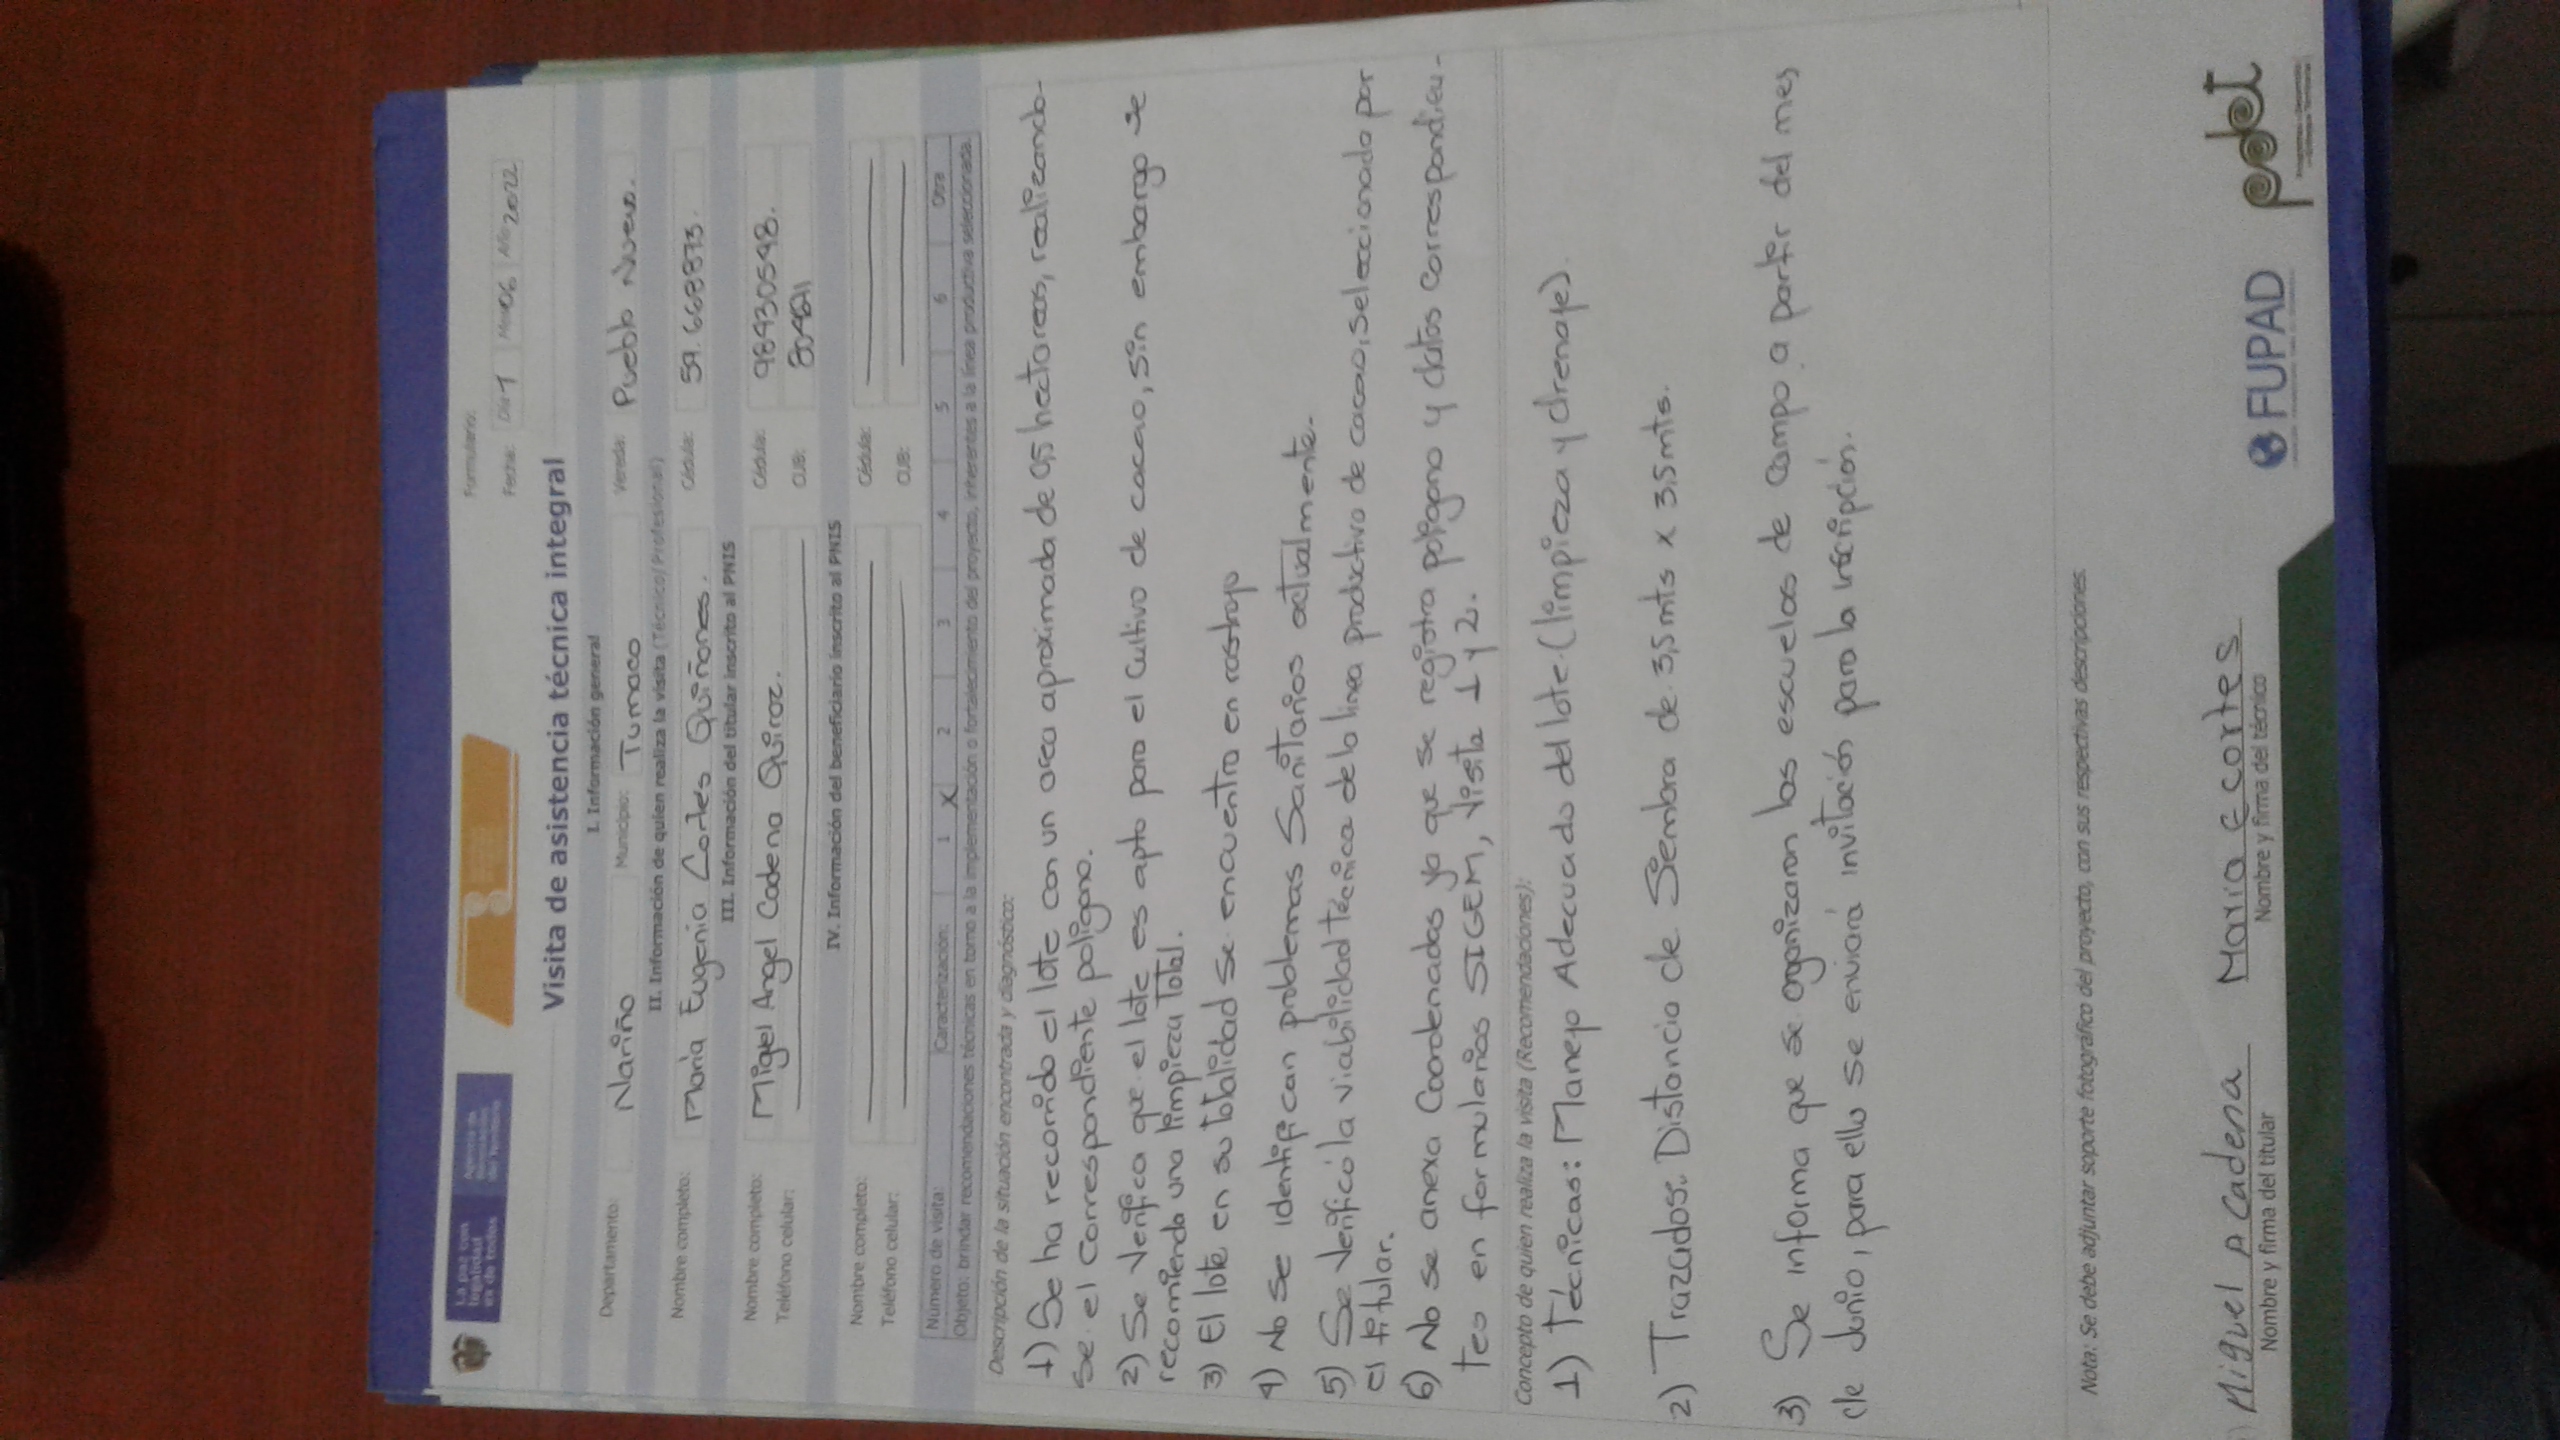 La paz con
legalidad
es de todos
Agencia de
Renovación
del Territorio
Formulario:
Fecha: Día 1 Mes 06 Año 2022
Visita de asistencia técnica integral
I. Información general
Departamento: Nariño Municipio: Tumaco Vereda: Pueblo Nuevo.
II. Información de quien realiza la visita (Técnico/ Profesional)
Nombre completo: Maria Eugenia Cortes Quiñones. Cédula: 59.668873.
III. Información del titular inscrito al PNIS
Nombre completo: Miguel Angel Cadena Quiroz. Cédula: 98430548.
Teléfono celular: CUB:
IV. Información del beneficiario inscrito al PNIS
Nombre completo: Cédula:
Teléfono celular: CUB:
Número de visita: Caracterización: 1 X 2 3 4 5 6 Otra
Objeto: brindar recomendaciones técnicas en torno a la implementación o fortalecimiento del proyecto, inherentes a la línea productiva seleccionada.
Descripción de la situación encontrada y diagnóstico:
1) Se ha recorrido el lote con un area aproximada de 0,5 hectareas, realizando-
se el correspondiente poligono.
2) Se Verifica que el lote es apto para el Cultivo de cacao, sin embargo se
recomienda una limpieza Total.
3) El lote en su totalidad se encuentra en rastrojo
4) No se identifican problemas Sanitarios actualmente.
5) Se Verificó la viabilidad técnica de la linea productiva de cacao, seleccionada por
el titular.
6) No se anexa Coordenadas ya que se registra poligono y datos correspondien-
tes en formularios SIGEM, Visita 1 y 2.
Concepto de quien realiza la visita (Recomendaciones):
1) Técnicas: Manejo Adecuado del lote. (limpieza y drenaje).
2) Trazados. Distancia de Siembra de 3,5mts x 3,5mts.
3) Se informa que se organizaran las escuelas de campo a partir del mes
de Junio, para ello se enviará invitación para la inscripción.
Nota: Se debe adjuntar soporte fotográfico del proyecto, con sus respectivas descripciones.
Miguel A Cadena Maria E cortes
Nombre y firma del titular Nombre y firma del técnico
FUPAD
pdet